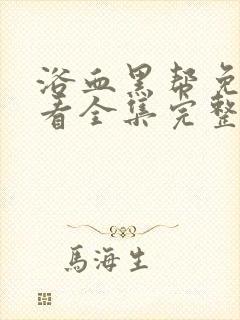 浴血黑帮免
看全集完整
馬海生